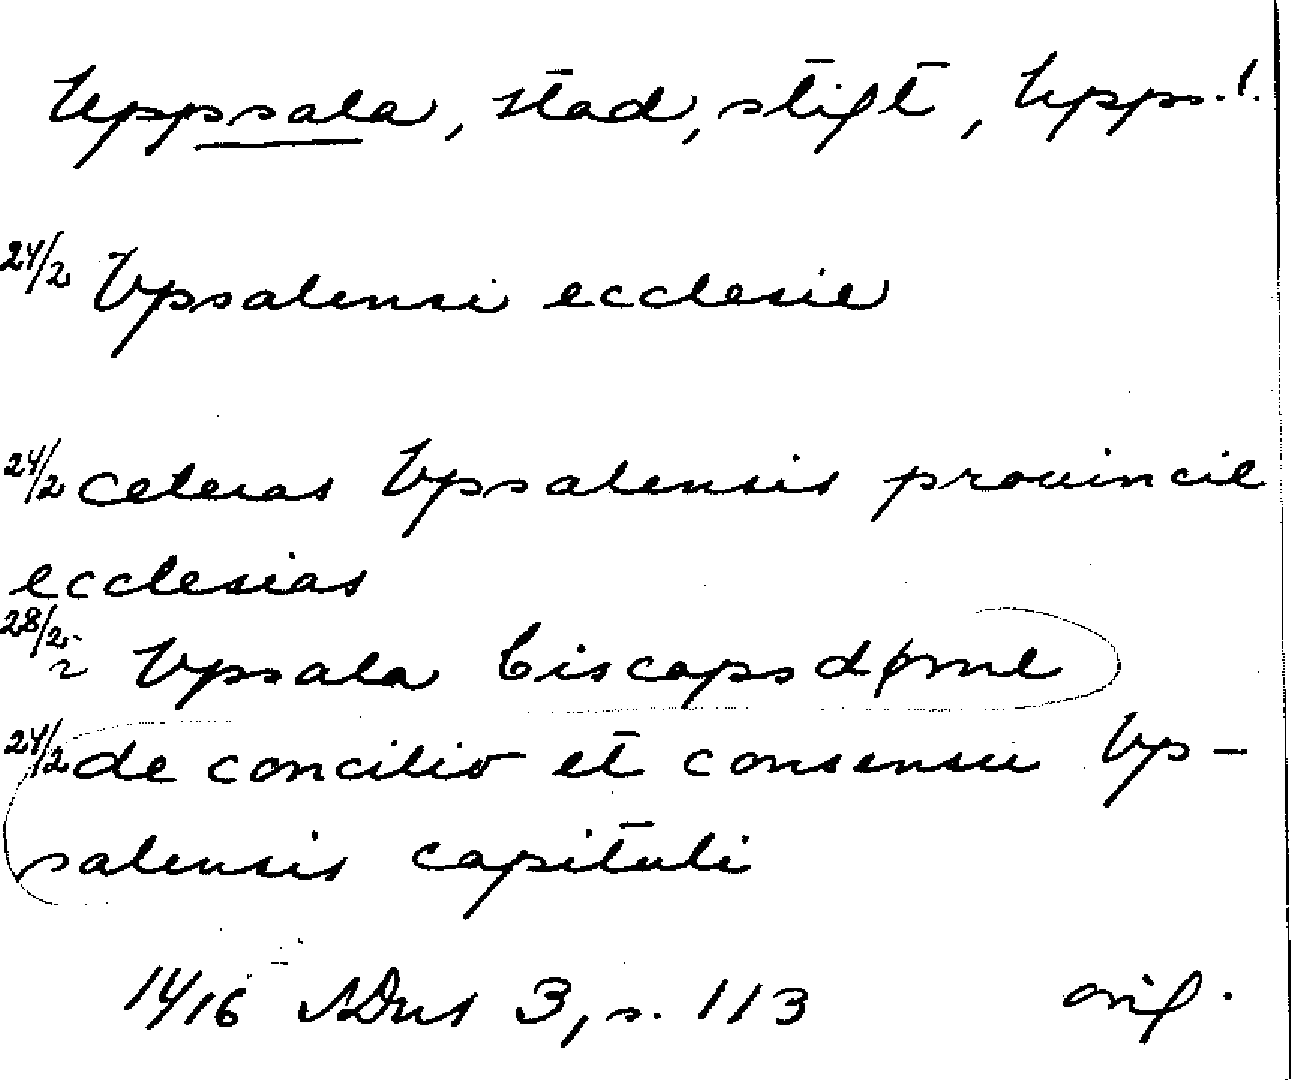 Uppsala, stad, stift, Upps. l.
24/2 Vpsalensi ecclesie
24/2 Ceteras Vpsalensis prouincie
ecclesias
28/2 Vpsala biscopsdøme
24/2 de concilio et consensu Vp-
salensis capituli
1416 SDns 3, s. 113 orig.